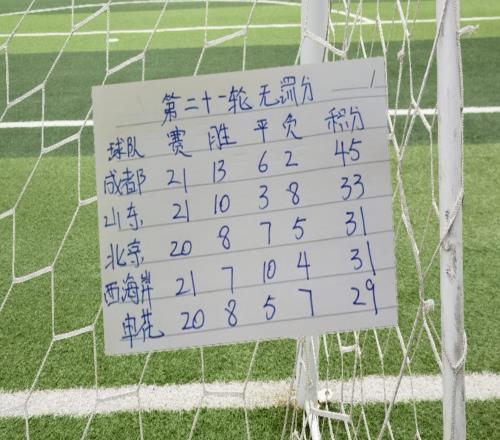 第二十一轮 无罚分
球队 赛 胜 平 负 积分
成都 21 13 6 2 45
山东 21 10 3 8 33
北京 20 8 7 5 31
西海岸 21 7 10 4 31
申花 20 8 5 7 29